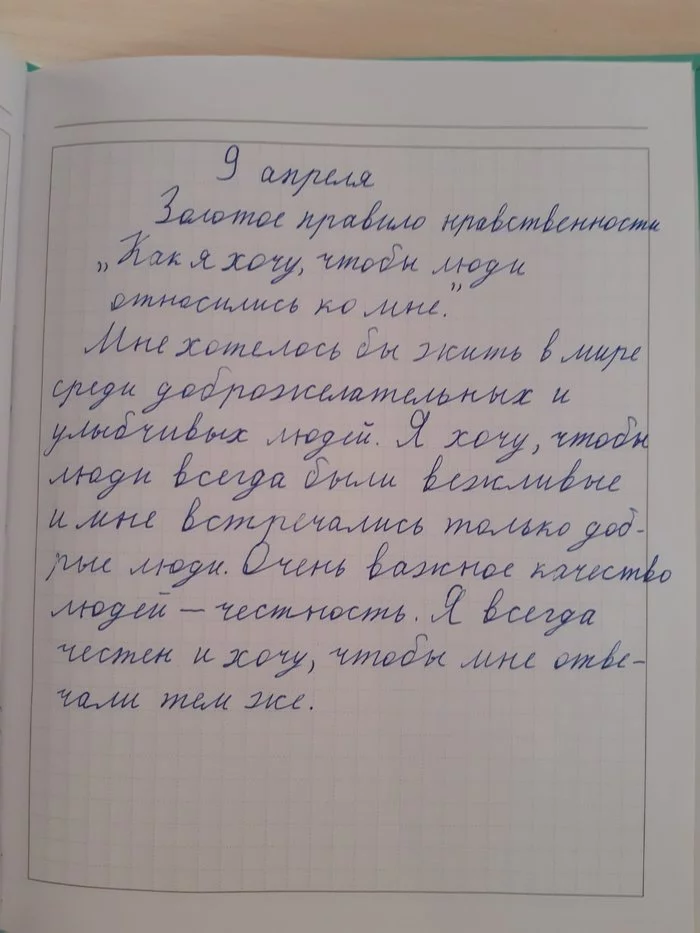 9 апреля
Золотое правило нравственности
„Как я хочу, чтобы люди
относились ко мне.”
Мне хотелось бы жить в мире
среди доброжелательных и
улыбчивых людей. Я хочу, чтобы
люди всегда были вежливые
и мне встречались только доб-
рые люди. Очень важное качество
людей – честность. Я всегда
честен и хочу, чтобы мне отве-
чали тем же.